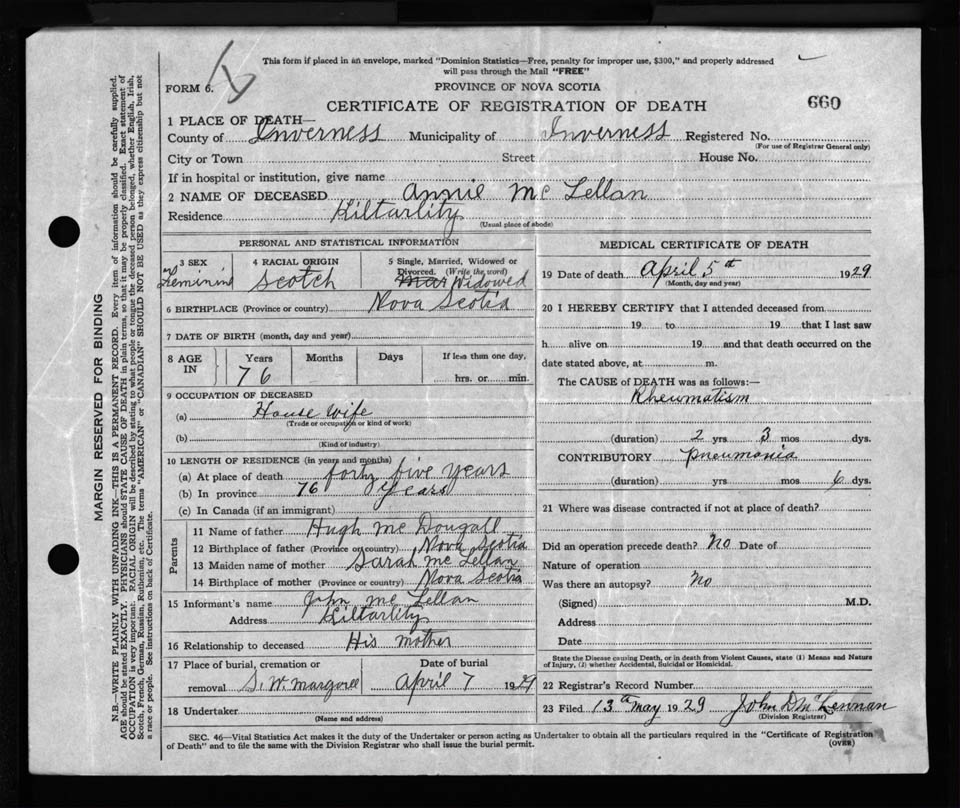 This form if placed in an envelope, marked "Dominion Statistics—Free, penalty for improper use, $300," and properly addressed
will pass through the Mail "FREE"
FORM 6.
PROVINCE OF NOVA SCOTIA
CERTIFICATE OF REGISTRATION OF DEATH
660
1 PLACE OF DEATH—
County of Inverness Municipality of Inverness Registered No.
(For use of Registrar General only)
City or Town Street House No.
If in hospital or institution, give name
2 NAME OF DECEASED Annie Mc Lellan
Residence Kiltarlity
(Usual place of abode)
PERSONAL AND STATISTICAL INFORMATION
3 SEX 4 RACIAL ORIGIN 5 Single, Married, Widowed or
Divorced. (Write the word)
Feminine Scotch Mar Widowed
6 BIRTHPLACE (Province or country) Nova Scotia
7 DATE OF BIRTH (month, day and year)
8 AGE IN Years Months Days If less than one day,
76 hrs. or min.
9 OCCUPATION OF DECEASED
(a) House wife
(Trade or occupation or kind of work)
(b)
(Kind of industry)
10 LENGTH OF RESIDENCE (in years and months)
(a) At place of death forty five years
(b) In province 76 years
(c) In Canada (if an immigrant)
Parents
11 Name of father Hugh Mc Dougall
12 Birthplace of father (Province or country) Nova Scotia
13 Maiden name of mother Sarah Mc Lellan
14 Birthplace of mother (Province or country) Nova Scotia
15 Informant's name John Mc Lellan
Address Kiltarlity
16 Relationship to deceased His mother
17 Place of burial, cremation or Date of burial
removal S. W. Margaree April 7 1929
18 Undertaker
(Name and address)
MEDICAL CERTIFICATE OF DEATH
19 Date of death April 5th 1929
(Month, day and year)
20 I HEREBY CERTIFY that I attended deceased from
19 to 19 that I last saw
h alive on 19 and that death occurred on the
date stated above, at m.
The CAUSE of DEATH was as follows:—
Rheumatism
(duration) 2 yrs 3 mos dys.
CONTRIBUTORY pneumonia
(duration) yrs mos 6 dys.
21 Where was disease contracted if not at place of death?
Did an operation precede death? No Date of
Nature of operation
Was there an autopsy? No
(Signed) M.D.
Address
Date
State the Disease causing Death, or in death from Violent Causes, state (1) Means and Nature
of Injury, (2) whether Accidental, Suicidal or Homicidal.
22 Registrar's Record Number
23 Filed 13th May 1929 John D McLennan
(Division Registrar)
SEC. 46—Vital Statistics Act makes it the duty of the Undertaker or person acting as Undertaker to obtain all the particulars required in the "Certificate of Registration
of Death" and to file the same with the Division Registrar who shall issue the burial permit.
(OVER)
MARGIN RESERVED FOR BINDING
N.B.—WRITE PLAINLY WITH UNFADING INK—THIS IS A PERMANENT RECORD. Every item of information should be carefully supplied.
AGE should be stated EXACTLY. PHYSICIANS should STATE CAUSE OF DEATH in plain terms, so that it may be properly classified. Exact statement of
OCCUPATION is very important. RACIAL ORIGIN will be described by stating to what people or tongue the deceased person belonged, whether English, Irish,
Scotch, French, German, Russian, Ruthenian, etc. The terms "AMERICAN" or "CANADIAN" SHOULD NOT BE USED as they express citizenship but not
a race or people. See instructions on back of Certificate.